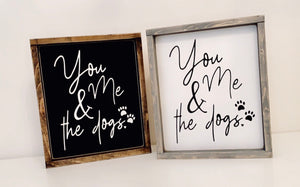 You
& Me
the dogs.
You
& Me
the dogs.